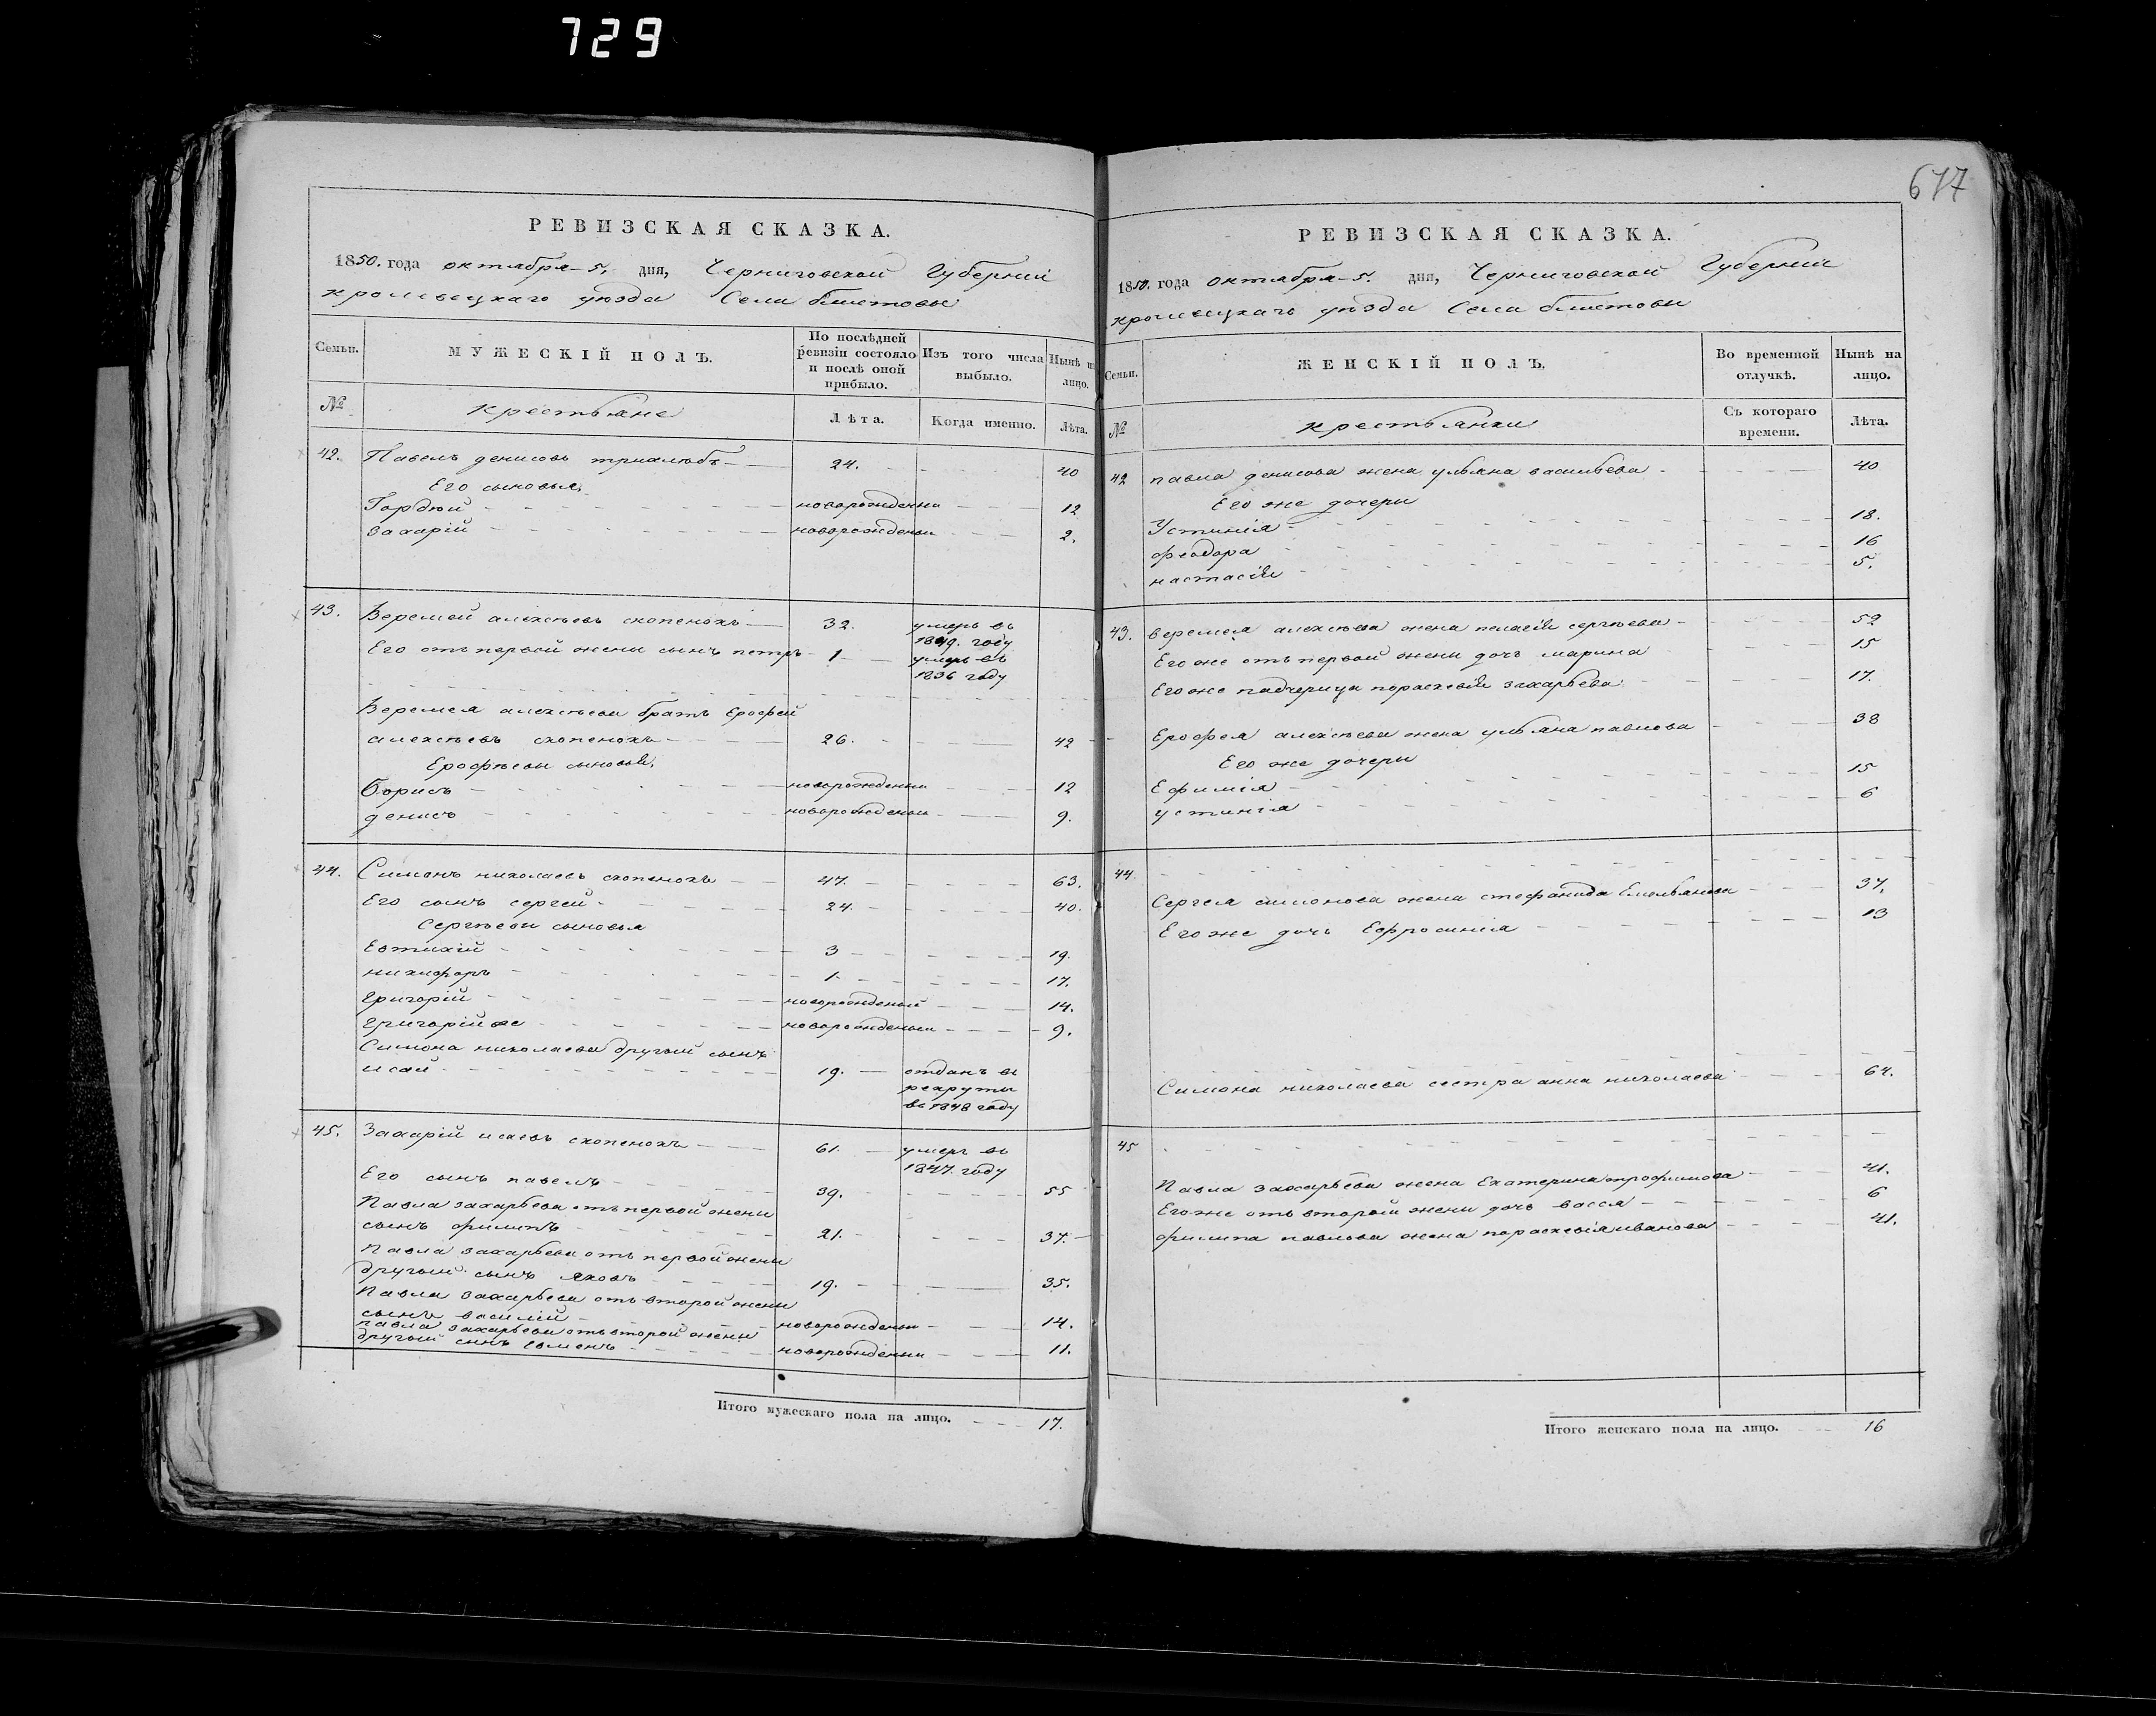 729
617
РЕВИЗСКАЯ СКАЗКА.
1850. года октября 5. дня, Черниговской Губернии
кролевецкаго уезда Села
Семьи.
МУЖЕСКІЙ ПОЛЪ.
По послѣдней ревизіи состояло и послѣ оной прибыло.
Изъ того числа выбыло.
Нынѣ на лицо.
№
крестьяне
Лѣта.
Когда именно.
Лѣта.
42. Павелъ денисовъ 24. 40
Его сыновья,
Гордѣй новорожденны 12
захарій новорожденны 2.
43. Веремей алексѣевъ скопенокъ 32. умеръ въ 1849. году
Его отъ первой жены сынъ петръ 1 умеръ въ 1836 году
Веремея алексѣева братъ Ерофей
алексѣевъ скопенокъ 26. 42
Ерофѣевы сыновья,
борисъ новорожденны 12
денисъ новорожденны 9.
44. Симонъ николаевъ скопенокъ 47. 63.
Его сынъ сергей 24. 40.
Сергѣевы сыновья
Евтихій 3 19.
никифоръ 1. 17.
григорій новорожденый 14.
григорій же новорожденны 9.
Симона николаева другий сынъ
исай 19. отданъ въ рекруты въ 1848 году
45. Захарій исаевъ скопенокъ 61. умеръ въ 1847. году
Его сынъ павелъ 39. 55
Павла захарьева отъ первой жены
сынъ филипъ 21. 37.
Павла захарьева отъ первой жены
другий сынъ яковъ 19. 35.
Павла захарьева отъ второй жены
сынъ василий новорожденны 14.
павла захарьева отъ второй жены
другий сынъ новорожденны 11.
Итого мужескаго пола на лицо. 17.
РЕВИЗСКАЯ СКАЗКА.
1850. года октября 5. дня, Черниговской Губернии
кролевецкаго уезда Села
Семьи.
ЖЕНСКІЙ ПОЛЪ.
Во временной отлучкѣ.
Нынѣ на лицо.
№
крестьянки
Съ котораго времени.
Лѣта.
42 павла денисова жена ульяна васильева 40
Его же дочери
Устинія 18.
феодора 16
настасія 5.
43. веремея алексѣева жена пелагія сергѣева 52
Его же отъ первой жены дочь марина 15
Его же падчерица параскевія захарьева 17.
Ерофея алексѣева жена ульяна павлова 38
Его же дочери
Ефимія 15
устинія 6
44.
Сергея симонова жена стефанида Емельянова 37.
Его же дочь Ефросинія 13
Симона николаева сестра анна николаева 64.
45
Павла захарьева жена Екатерина трофимова 41.
Его же отъ второй жены дочь васса 6
филипа павлова жена параскевія иванова 41.
Итого женскаго пола на лицо. 16